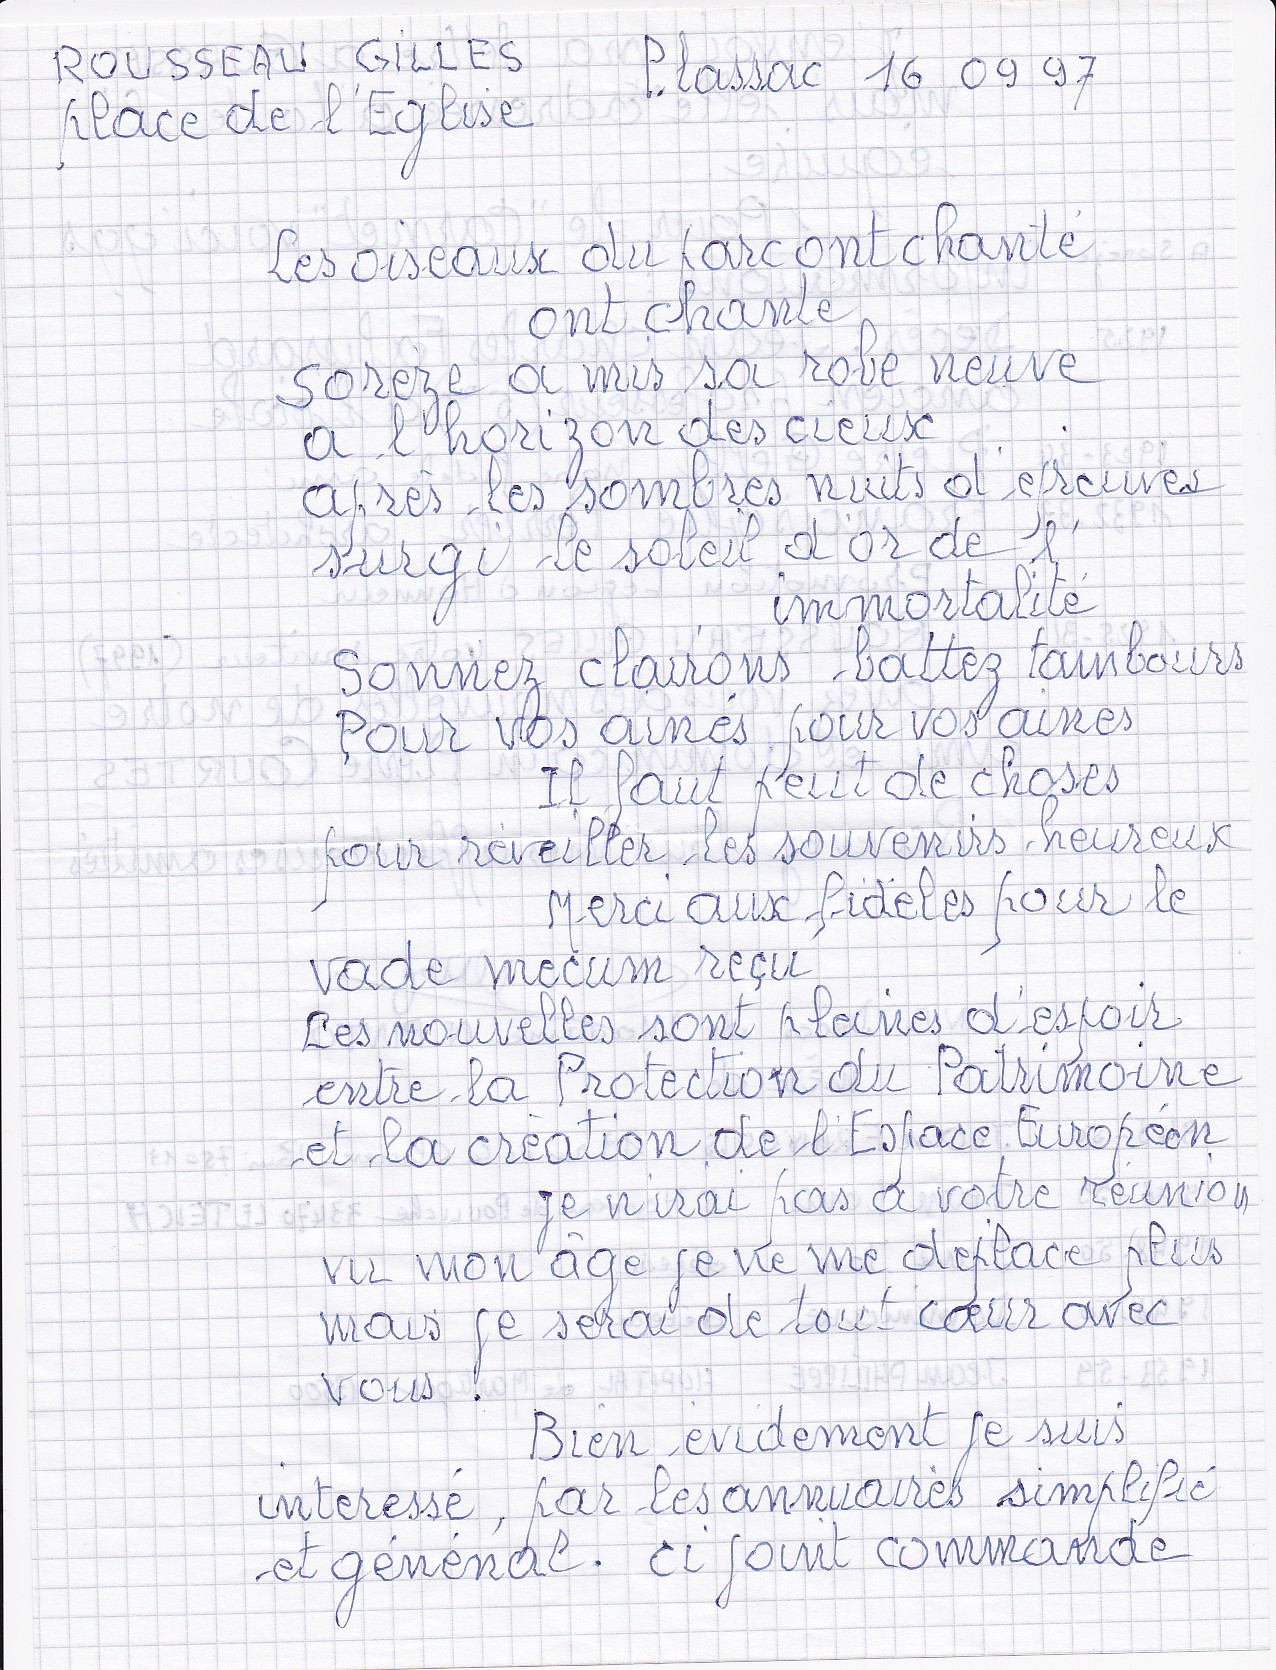 ROUSSEAU GILLES Plassac 16 09 97
place de l'Eglise
Les oiseaux du parc ont chanté
ont chanté
Sorèze a mis sa robe neuve
a l'horizon des cieux
après les sombres nuits d'épreuves
surgi le soleil d'or de l'
immortalité
Sonnez clairons battez tambours
Pour vos ainés pour vos ainés
Il faut peut de choses
pour réveiller les souvenirs heureux
Merci aux fidèles pour le
vade mecum reçu
Les nouvelles sont plaines d'espoir
entre la Protection du Patrimoine
et la création de l'Espace Européen
je n'irai pas a votre réunion
vu mon âge je ne me deplace plus
mais je serai de tout cœur avec
vous !
Bien évidement je suis
interessé, par les annuaires simplifié
et général. ci joint commande